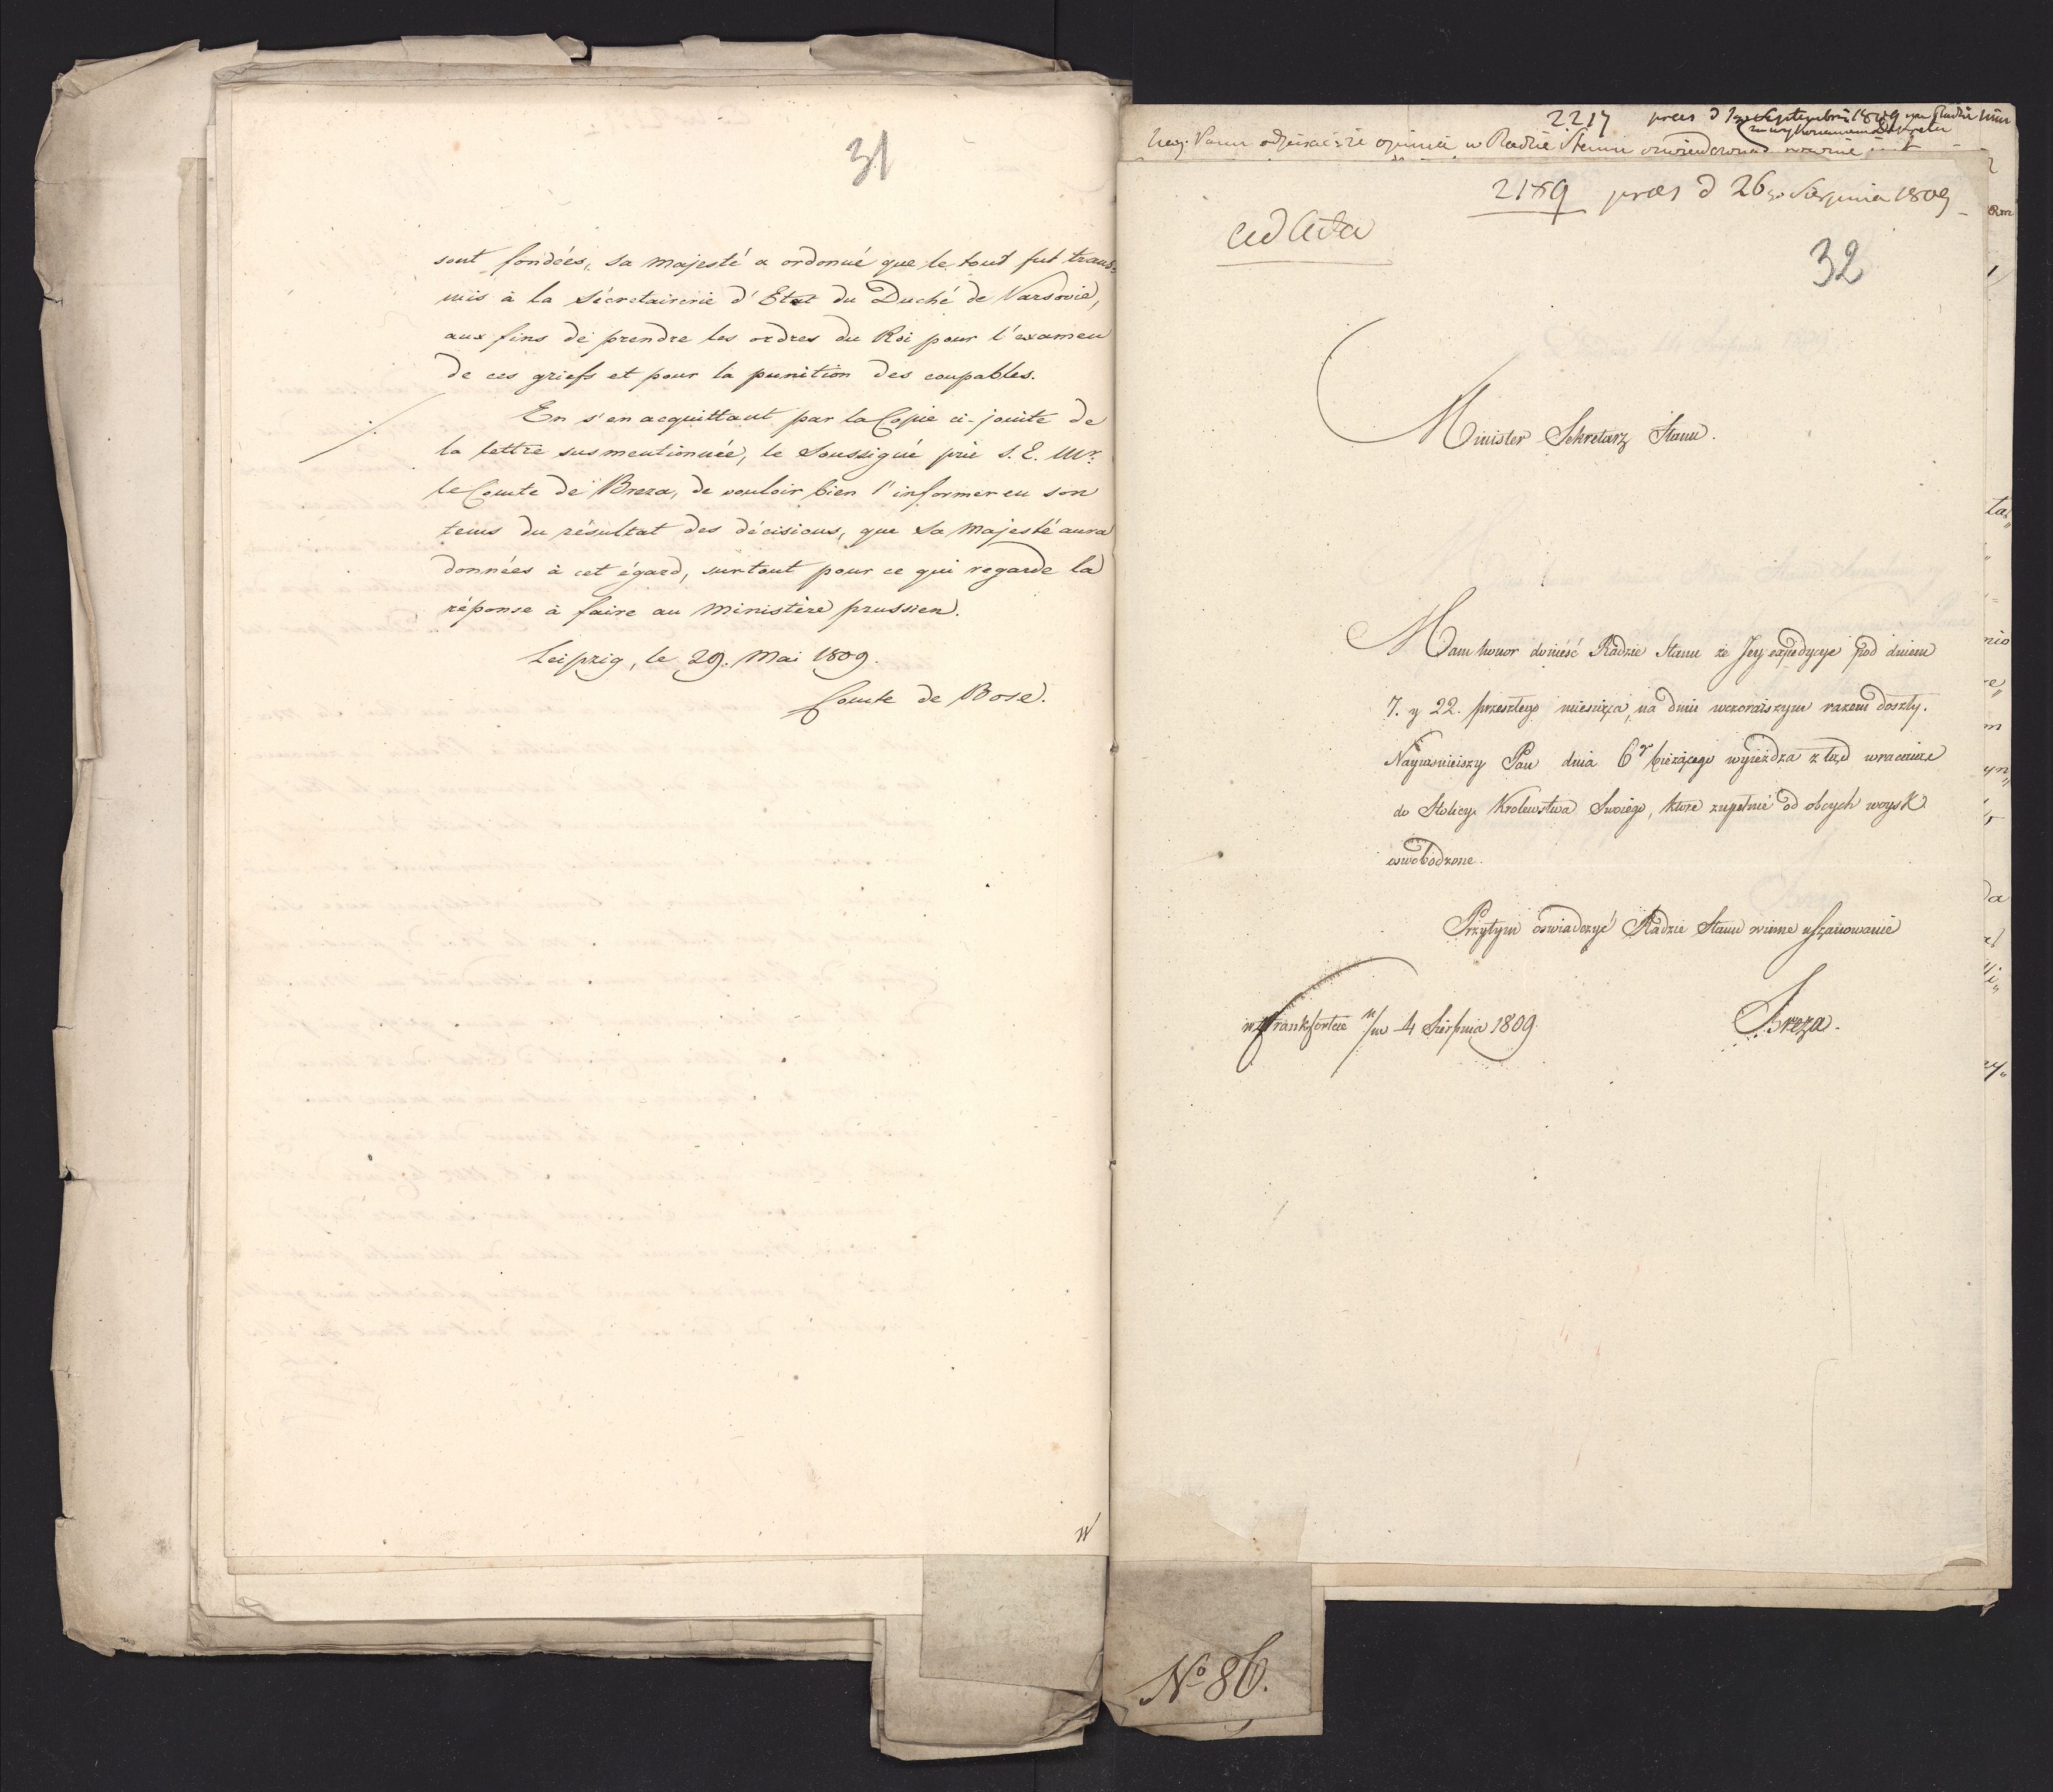 31
sont fondées, Sa Majesté a ordonné que le tout fut trans-
mis à la Sécretairerie d'Etat du Duché de Varsovie,
aux fins de prendre les ordres du Roi pour l'examen
de ces griefs et pour la punition des coupables.
En s'en acquittant par la Copie ci-jointe de
la lettre susmentionnée, le Soussigné prie S. E. Mr.
le Comte de Breza, de vouloir bien l'informer en son
tems du résultat des décisions, que Sa Majesté aura
données à cet égard, surtout pour ce qui regarde la
réponse à faire au Ministère prussien.
Leipzig, le 29. Mai 1809.
Comte de Bose.
2217 praes d Septembris 1809
opinia w Radzie Stanu
2189 praes d 26 go Sierpnia 1809
ad Acta
32
Minister Sekretarz Stanu.
Mam honor donieść Radzie Stanu że Jey expedycye pod dniem
7. y 22. przeszłego miesiąca, na dniu wczoraiszym razem doszły.
Nayiasnieiszy Pan dnia 6go bieżącego wyieżdza z tąd wracaiąc
do Stolicy Krolewstwa Swoiego, ktore zupełnie od obcych woysk
uwobodzone.
Przytym oswiadczyć Radzie Stanu winne uszanowanie
w Frankforcie n/m 4 Sierpnia 1809
Breza.
No 86.